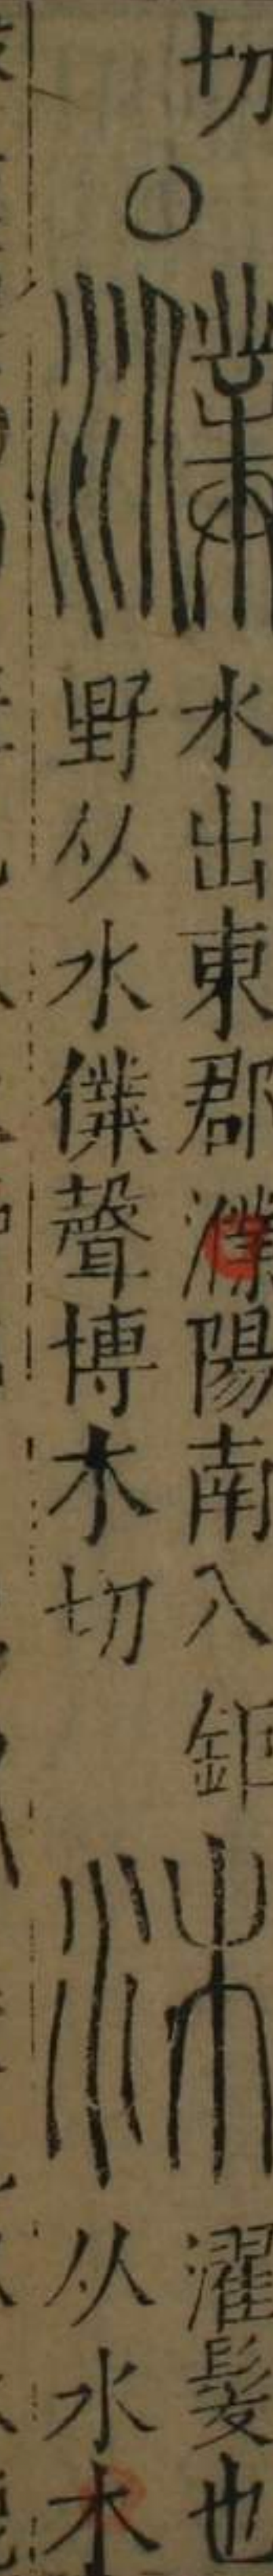 切
○
濮
水出東郡濮陽南入鉅
野从水僕聲博木切
沐
濯髮也
从水木